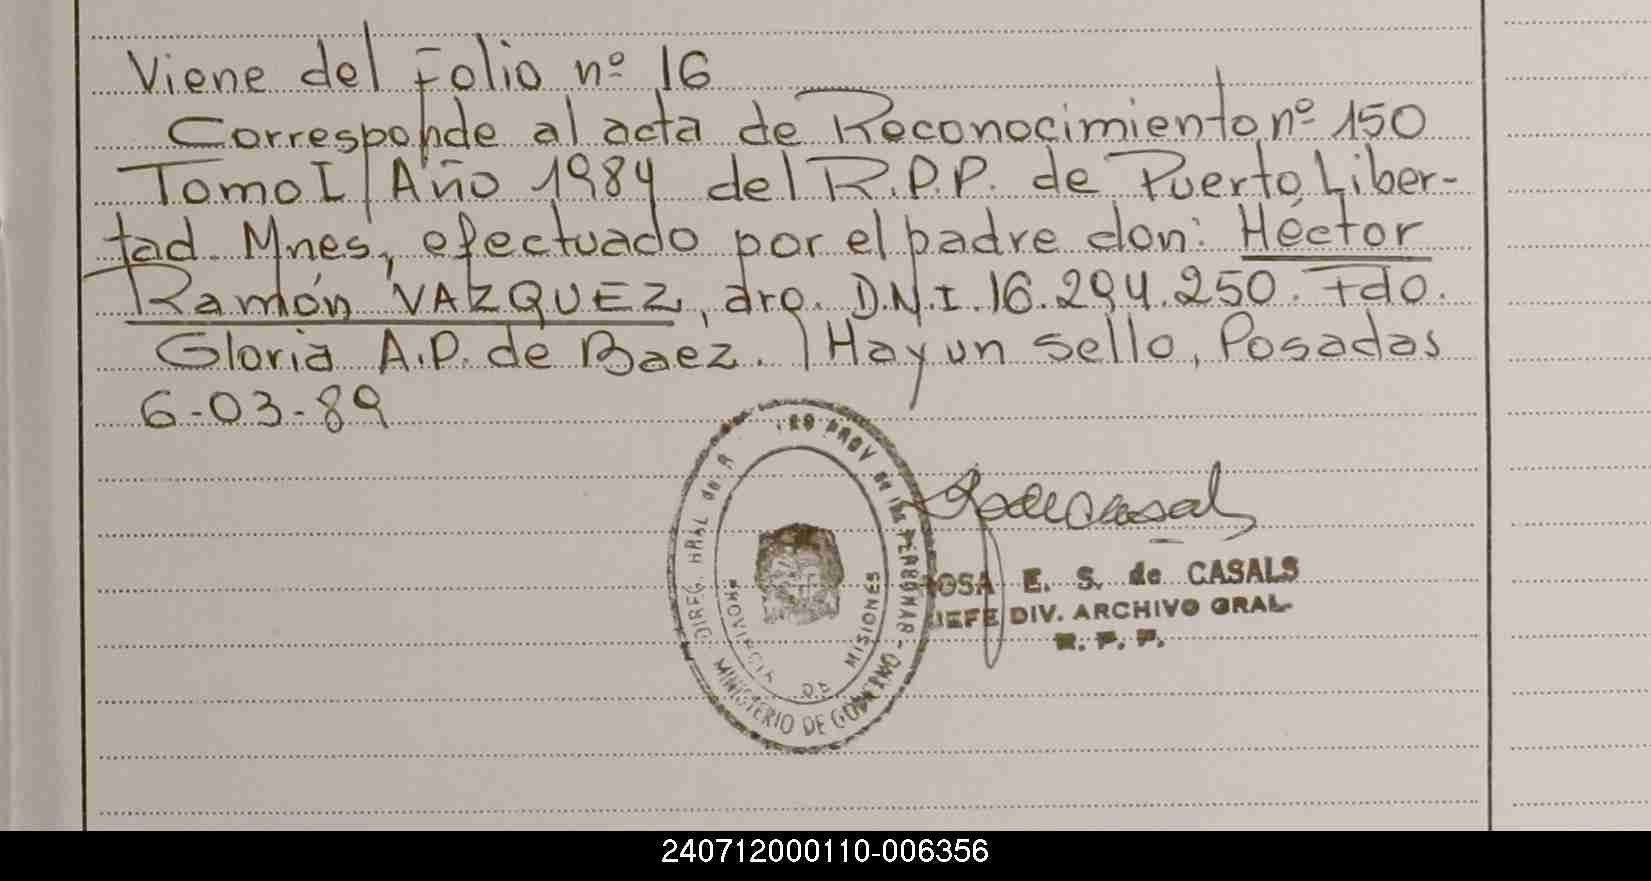 Viene del Folio nº 16
Corresponde al acta de Reconocimiento nº 150
Tomo I Año 1984 del R.P.P. de Puerto Liber-
tad Mnes, efectuado por el padre don: Héctor
Ramón VAZQUEZ, arg. D.N.I. 16.294.250. Fdo.
Gloria A.P. de Baez. Hay un sello, Posadas
6-03-89
PROVINCIA DE MISIONES
MINISTERIO DE GOBIERNO
E. S. de CASALS
DIV. ARCHIVO GRAL
R. P. P.
240712000110-006356